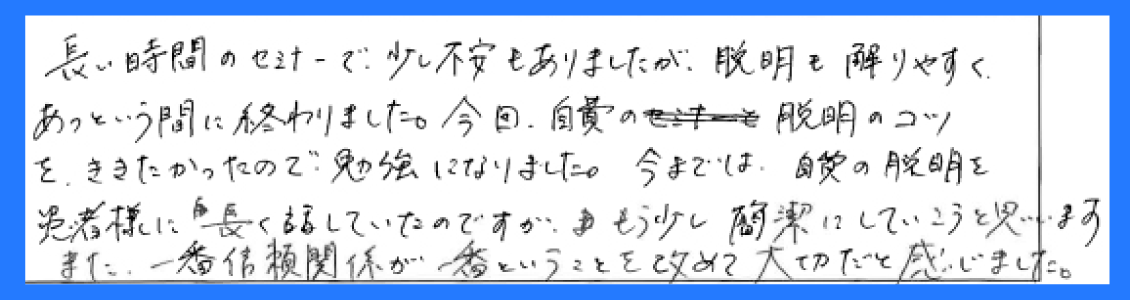 長い時間のセミナーで少し不安もありましたが、説明も解りやすく、
あっという間に終わりました。今回、自費の説明のコツ
を、ききたかったので勉強になりました。今までは、自費の説明を
患者様に長く話していたのですが、もう少し簡潔にしていこうと思います
また、一番信頼関係が一番ということを改めて大切だと感じました。